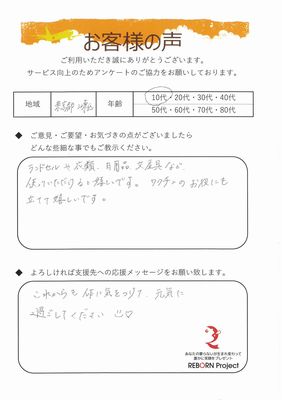 お客様の声
ご利用いただき誠にありがとうございます。
サービス向上のためアンケートのご協力をお願いしております。
地域 京都 年齢 10代・20代・30代・40代
50代・60代・70代・80代
◆ ご意見・ご要望・お気づきの点がございましたら
どんな些細な事でもご教示ください。
ランドセルや衣類、日用品、文房具など、
使っていただけると嬉しいです。ワクチンのお役にも
立てて嬉しいです。
◆ よろしければ支援先への応援メッセージをお願い致します。
これからも体に気をつけて、元気に
過ごしてください
あなたの要らないが生まれ変わって
誰かに笑顔をプレゼント
REBORN Project